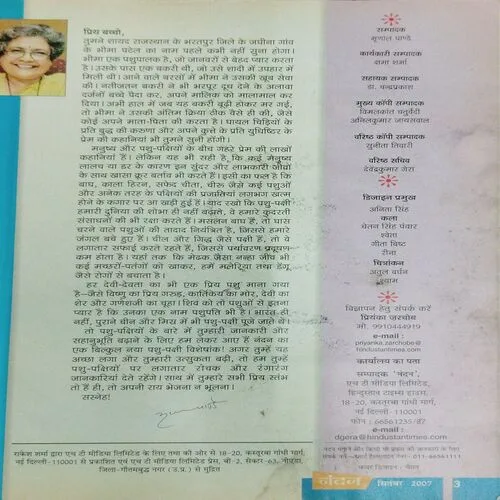 प्रिय बच्चो,
तुमने शायद राजस्थान के भरतपुर जिले के जघीना गांव
के भीमा पटेल का नाम पहले कभी नहीं सुना होगा।
भीमा एक पशुपालक है, जो जानवरों से बेहद प्यार करता
है। उसके पास एक बकरी थी, जो उसे शादी में उपहार में
मिली थी। आने वाले बरसों में भीमा ने उसकी खूब सेवा
की। नतीजतन बकरी ने भी भरपूर दूध देने के अलावा
दर्जनों बच्चे पैदा कर, अपने मालिक को मालामाल कर
दिया। अभी हाल में जब यह बकरी बूढ़ी होकर मर गई,
तो भीमा ने उसकी अंतिम क्रिया ठीक वैसे ही की, जैसे
कोई अपने माता-पिता की करता है। घायल चिड़ियों के
प्रति बुद्ध की करुणा और अपने कुत्ते के प्रति युधिष्ठिर के
प्रेम की कहानियां भी तुमने सुनी होंगी।
मनुष्य और पशु-पक्षियों के बीच गहरे प्रेम की लाखों
कहानियां हैं। लेकिन यह भी सही है, कि कई मनुष्य
लालच या डर के कारण इन सुंदर और लाभकारी जीवों
के साथ खासा क्रूर बर्ताव भी करते हैं। इसी का फल है कि
बाघ, काला हिरन, सफेद चीता, चीरू जैसे कई पशुओं
और अनेक तरह के पक्षियों की प्रजातियां लगभग खत्म
होने के कगार पर आ खड़ी हुई हैं। याद रखो कि पशु-पक्षी
हमारी दुनिया की शोभा ही नहीं बढ़ाते, वे हमारे कुदरती
संसाधनों की भी रक्षा करते हैं। मसलन बाघ हैं, तो घास
चरने वाले पशुओं की तादाद नियंत्रित है, जिससे हमारे
जंगल बचे हुए हैं। चील और गिद्ध जैसे पक्षी हैं, तो वे
लगातार सफाई करते रहते हैं, जिससे पर्यावरण प्रदूषण
कम होता है। यहां तक कि मेढक जैसा नन्हा जीव भी
कई मच्छरों-पतंगों को खाकर, हमें मलेरिया तथा डेंगू
जैसे रोगों से बचाता है।
हर देवी-देवता का भी एक प्रिय पशु माना गया
है—जैसे विष्णु का प्रिय गरुड़, कार्तिकेय का मोर, देवी का
शेर और गणेशजी का चूहा। शिव को तो पशुओं से इतना
प्यार है कि उनका एक नाम पशुपति भी है। भारत ही
नहीं, पुराने चीन और मिस्र में भी पशु-पक्षी पूजे जाते थे।
तो पशु-पक्षियों के बारे में तुम्हारी जानकारी और
सहानुभूति बढ़ाने के लिए हम लेकर आए हैं नंदन का
एक बिल्कुल नया पशु-पक्षी विशेषांक! अगर तुम्हें यह
अच्छा लगा और तुम्हारी उत्सुकता बढ़ी, तो हम तुम्हें
पशु-पक्षियों पर लगातार रोचक और रंगारंग
जानकारियां देते रहेंगे। साथ में तुम्हारे सभी प्रिय स्तंभ
तो हैं ही, तो अपनी राय भेजना न भूलना।
सस्नेह!
राकेश शर्मा द्वारा एच टी मीडिया लिमिटेड के लिए तथा की ओर से 18-20, कस्तूरबा गांधी मार्ग,
नई दिल्ली-110001 से प्रकाशित एवं एच टी मीडिया लिमिटेड प्रेस, बी-2, सेक्टर-63, नोएडा,
जिला-गौतमबुद्ध नगर (उ.प्र.) से मुद्रित
संपादक
मृणाल पाण्डे
कार्यकारी सम्पादक
क्षमा शर्मा
सहायक सम्पादक
डा. चन्द्रप्रकाश
मुख्य कॉपी सम्पादक
विमलकांत चतुर्वेदी
अनिलकुमार जायसवाल
वरिष्ठ कॉपी सम्पादक
सुनीता तिवारी
वरिष्ठ सचिव
देवेंद्रकुमार गेरा
डिजाइन प्रमुख
अनिता सिंह
कला
चेतन सिंह पंवार
श्वेता
गीता बिष्ट
रीना
चित्रांकन
अतुल वर्धन
श्याम
विज्ञापन हेतु संपर्क करें
प्रियंका ज़रचोब
मो. 9910444919
e-mail :
priyanka.zarchobe@
hindustantimes.com
कार्यालय का पता
सम्पादक 'नंदन',
एच टी मीडिया लिमिटेड,
हिन्दुस्तान टाइम्स हाउस,
18-20, कस्तूरबा गांधी मार्ग,
नई दिल्ली-110001
फोन : 66561235/87
e-mail :
dgera@hindustantimes.com
नंदन सितंबर 2007 3